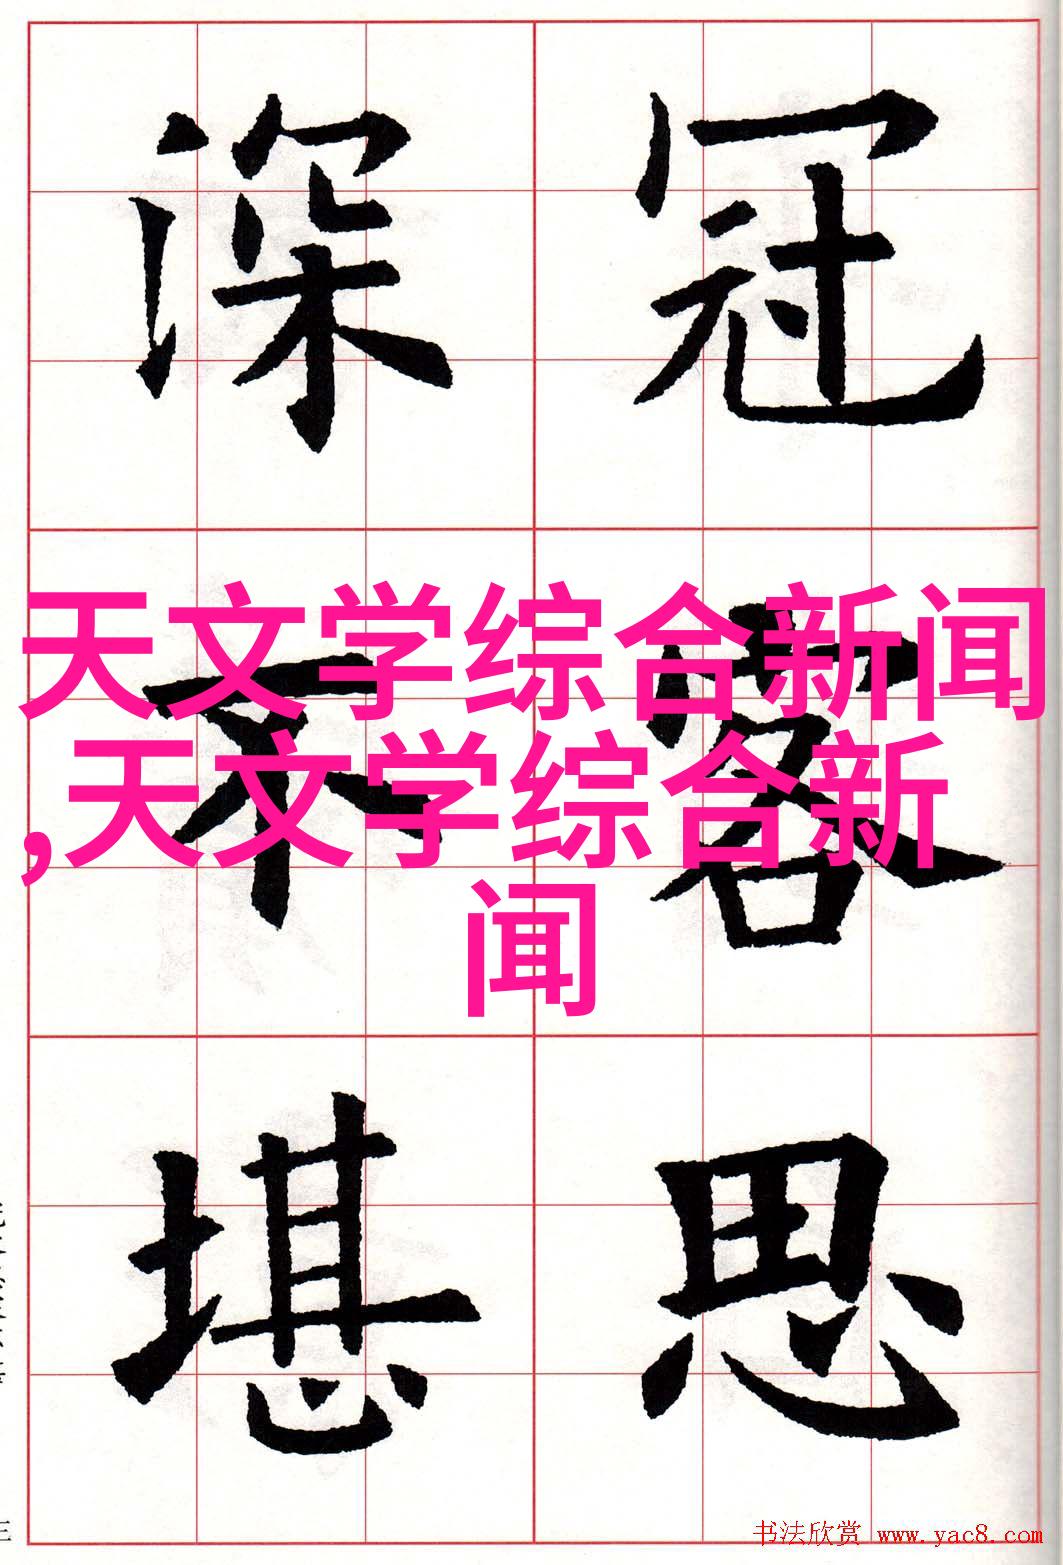 冠
深
天文学综合新闻
,天文学综合新
闻
客
不
思
堪
书法欣赏 www.yac8.com